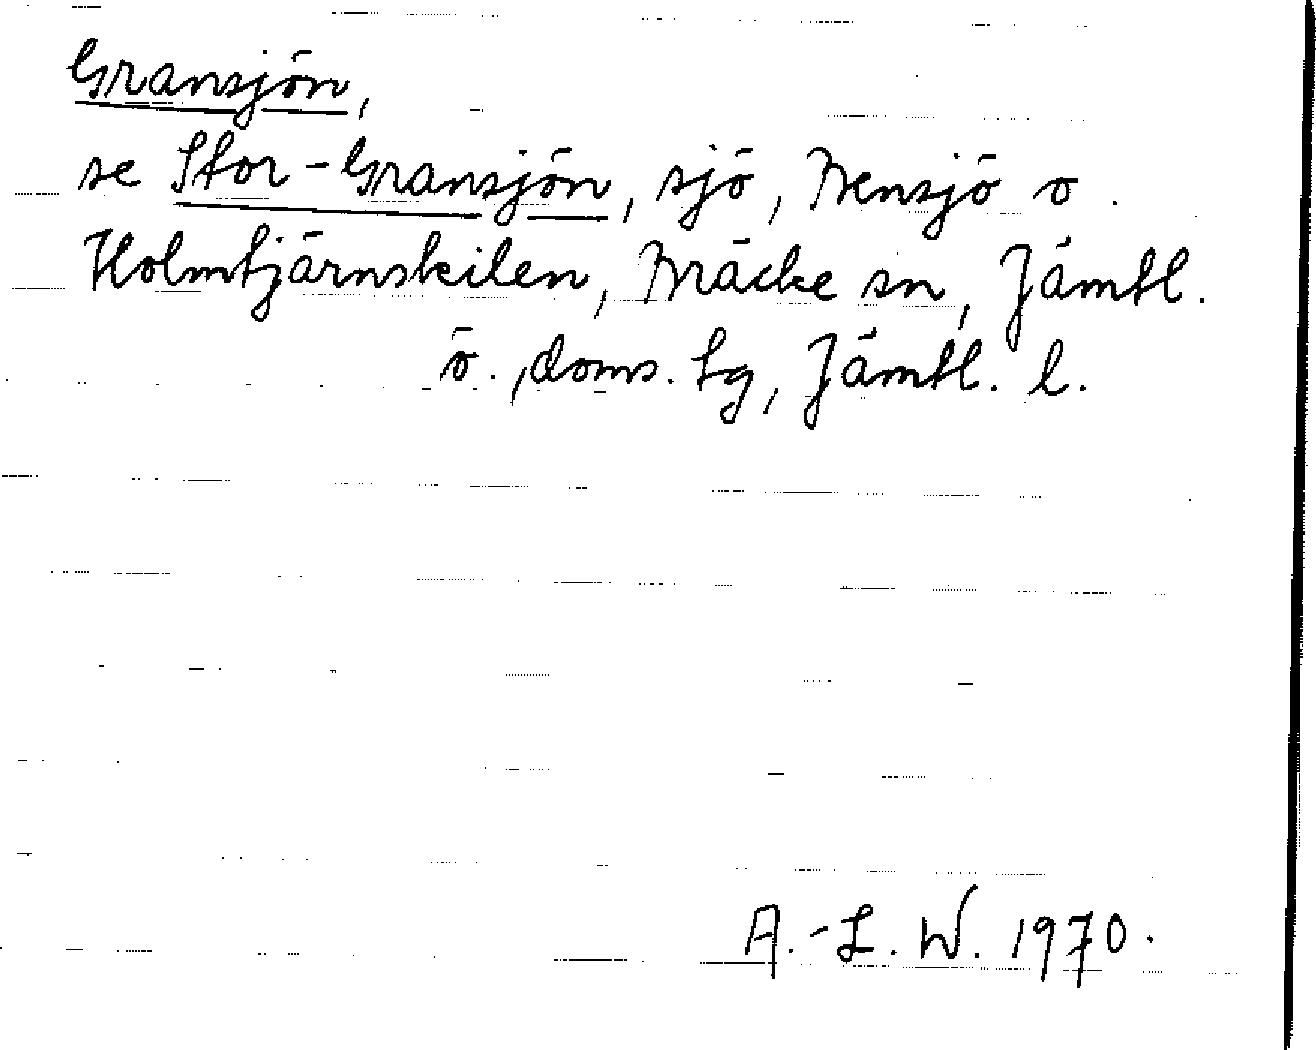 Gransjön,
se Stor-Gransjön, sjö, Bensjö o.
Holmtjärnskilen, Bräcke sn, Jämtl.
ö., doms. tg, Jämtl. l.
A.-L. W. 1970.